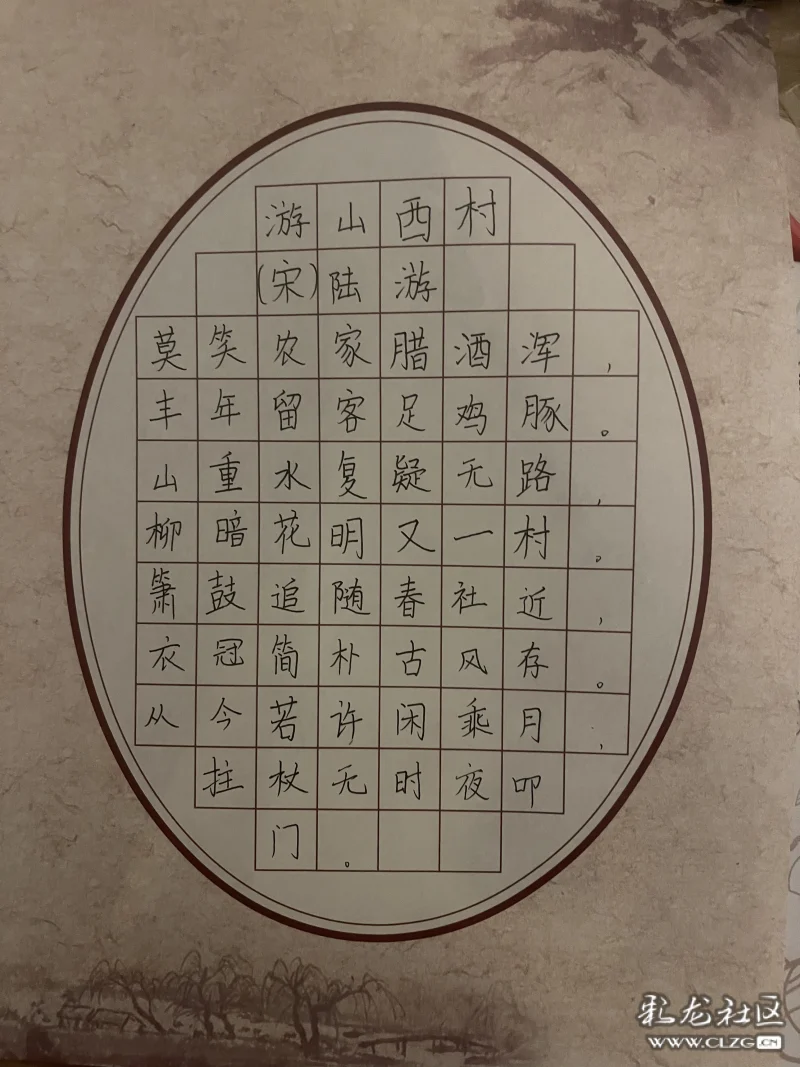 游山西村
(宋)陆游
莫笑农家腊酒浑，
丰年留客足鸡豚。
山重水复疑无路，
柳暗花明又一村。
箫鼓追随春社近，
衣冠简朴古风存。
从今若许闲乘月，
拄杖无时夜叩
门。
彩龙社区
WWW.CLZG.CN